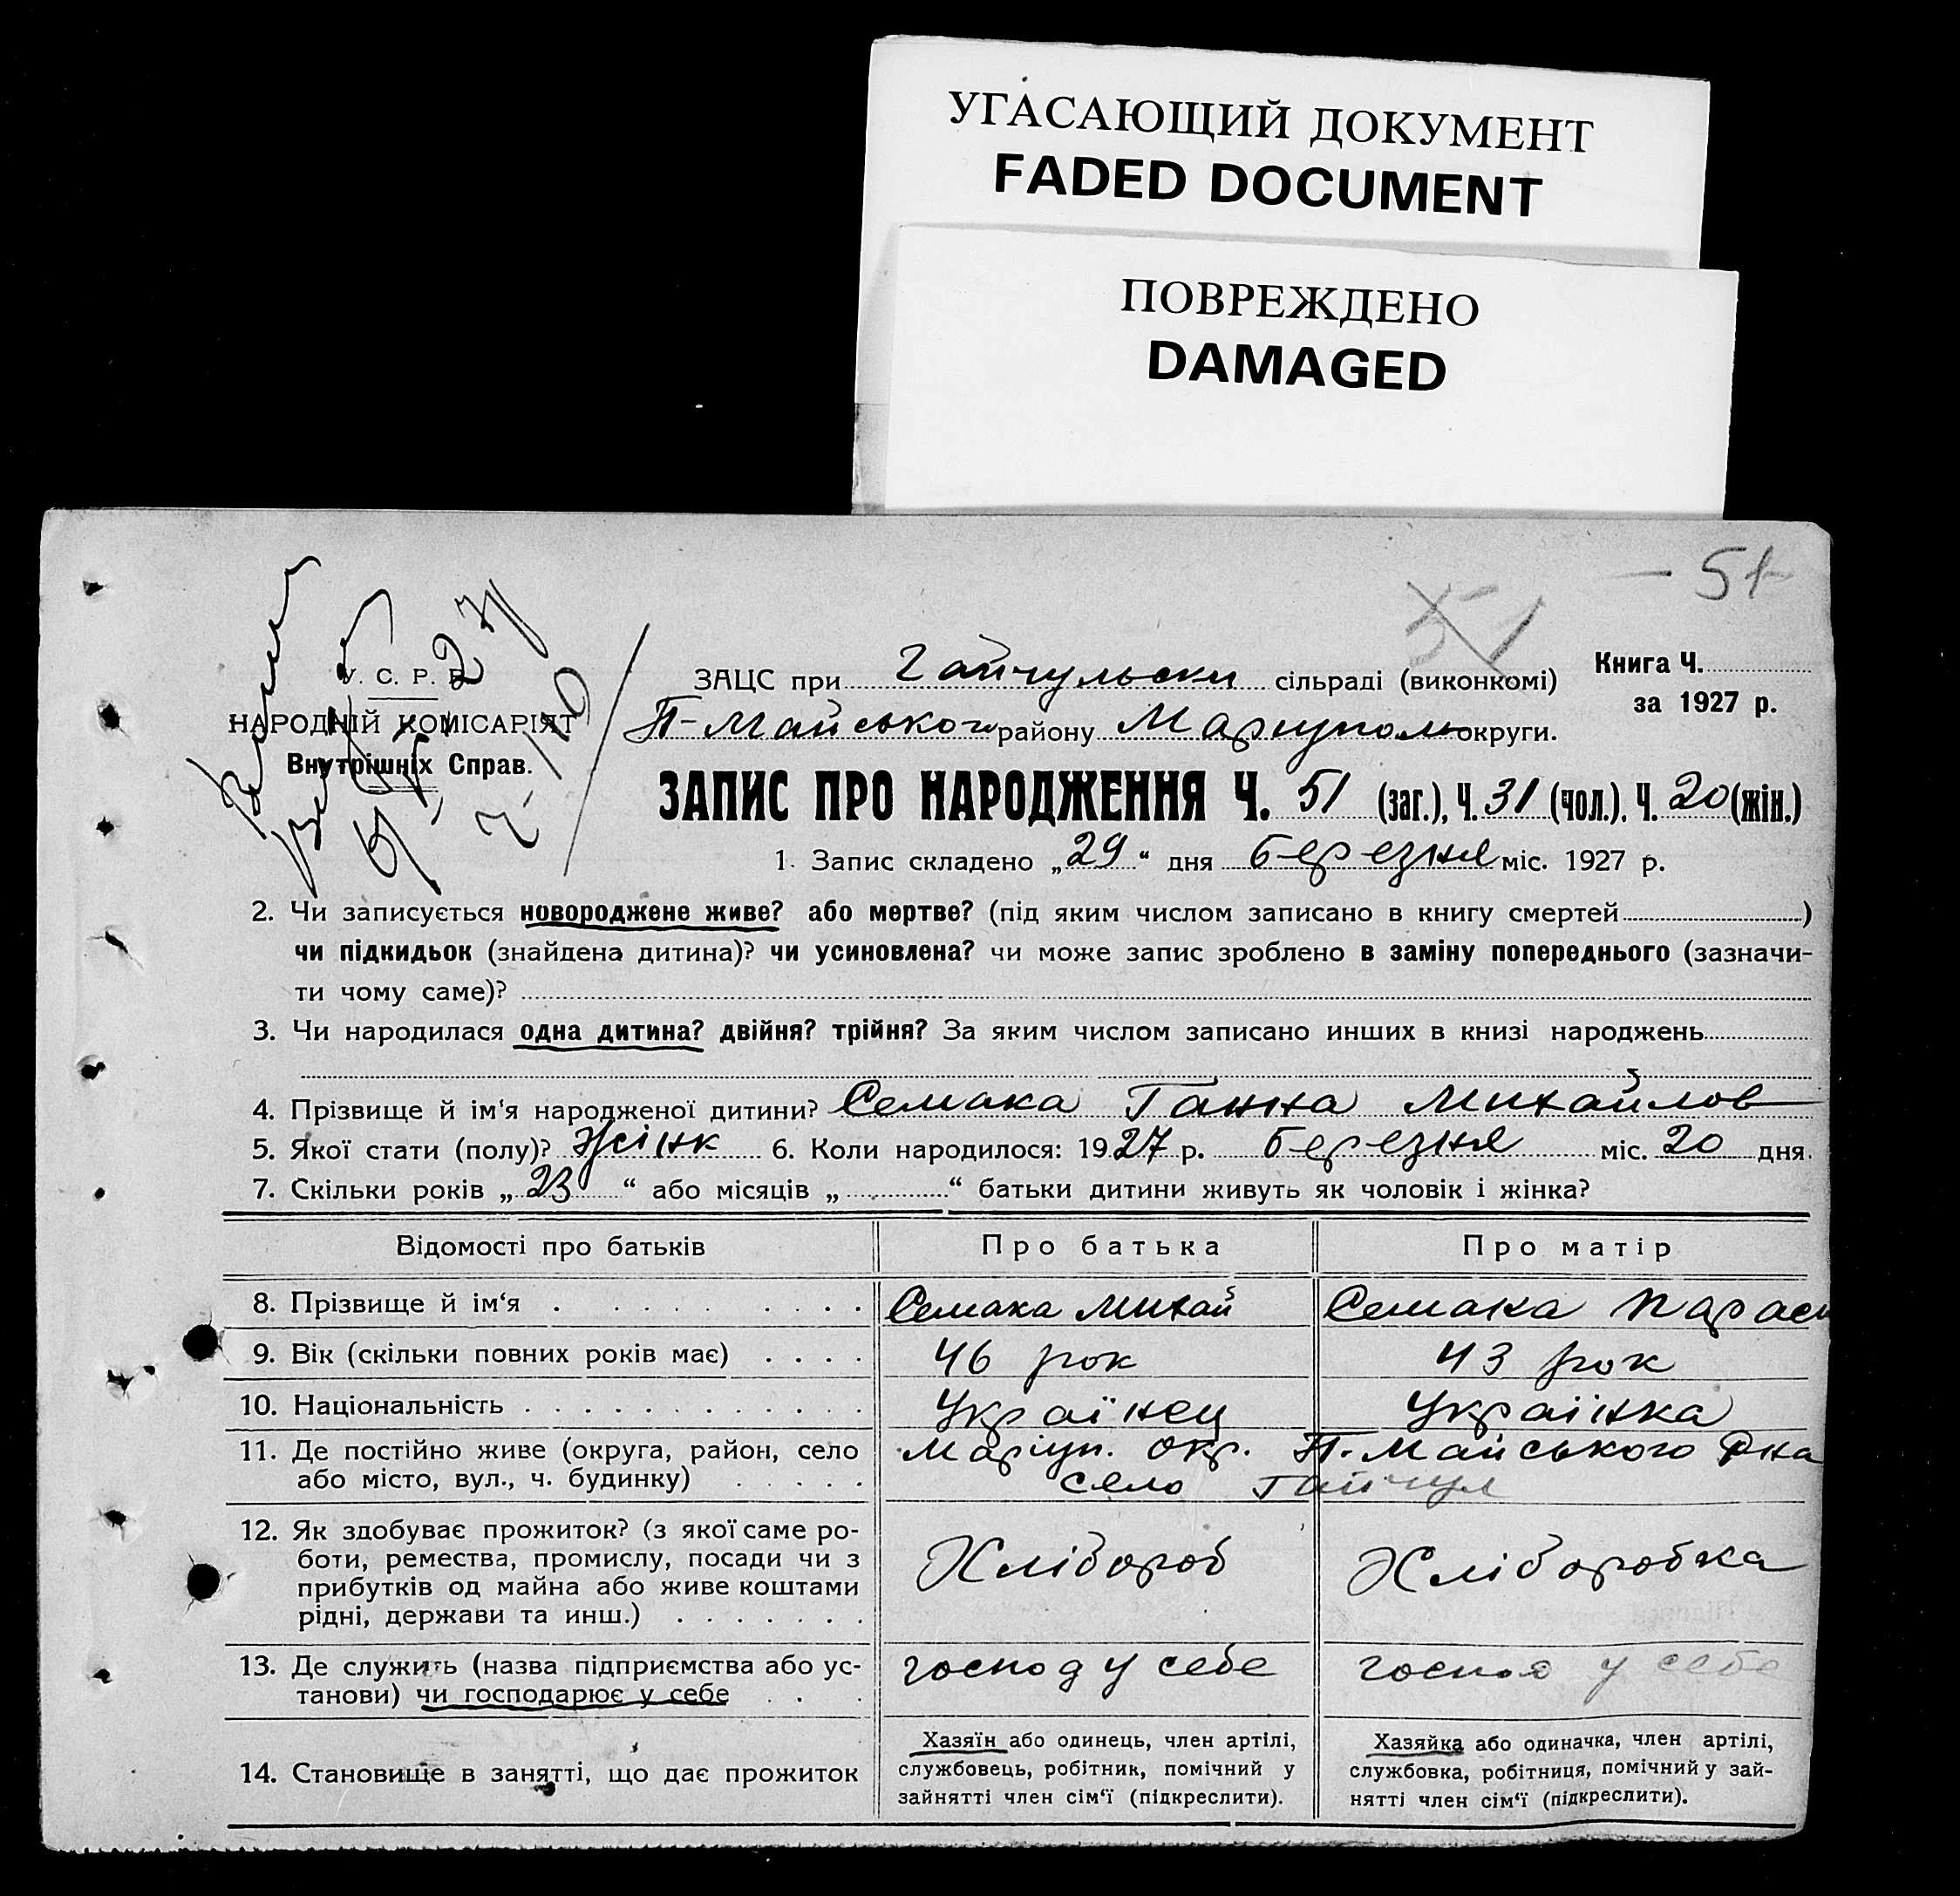 УГАСАЮЩИЙ ДОКУМЕНТ
FADED DOCUMENT
ПОВРЕЖДЕНО
DAMAGED
— 51
51
У. С. Р. Р.
НАРОДНІЙ КОМІСАРІЯТ
Внутрішніх Справ.
ЗАЦС при Гайчульски сільраді (виконкомі)
Книга Ч.
за 1927 р.
П-Майського району Маріупол округи.
ЗАПИС ПРО НАРОДЖЕННЯ Ч. 51 (заг.), Ч. 31 (чол.). Ч. 20 (жін.)
1. Запис складено „29“ дня березня міс. 1927 р.
2. Чи записується новороджене живе? або мертве? (під яким числом записано в книгу смертей)
чи підкидьок (знайдена дитина)? чи усиновлена? чи може запис зроблено в заміну попереднього (зазначи-
ти чому саме)?
3. Чи народилася одна дитина? двійня? трійня? За яким числом записано инших в книзі народжень
4. Прізвище й ім‘я народженої дитини? Семака Ганна Михайлов
5. Якої стати (полу)? жінк 6. Коли народилося: 1927 р. березня міс. 20 дня.
7. Скільки років „23“ або місяців „ “ батьки дитини живуть як чоловік і жінка?
Відомості про батьків Про батька Про матір
8. Прізвище й ім‘я Семака Михай Семака Парас
9. Вік (скільки повних років має) 46 рок 43 рок
10. Національність Українец Українка
11. Де постійно живе (округа, район, село Маріуп. окр. П-Майського Рна
або місто, вул., ч. будинку) село Гайчул
12. Як здобуває прожиток? (з якої саме ро-
боти, ремества, промислу, посади чи з Хлібороб Хлібороб​ка
прибутків од майна або живе коштами
рідні, держави та инш.)
13. Де служить (назва підприємства або ус- господ у себе господ у себе
танови) чи господарює у себе
14. Становище в занятті, що дає прожиток
Хазяїн або одинець, член артілі,
службовець, робітник, помічний у
зайнятті член сім‘ї (підкреслити).
Хазяйка або одиначка, член артілі,
службовка, робітниця, помічний у зай-
нятті член сім‘ї (підкреслити).